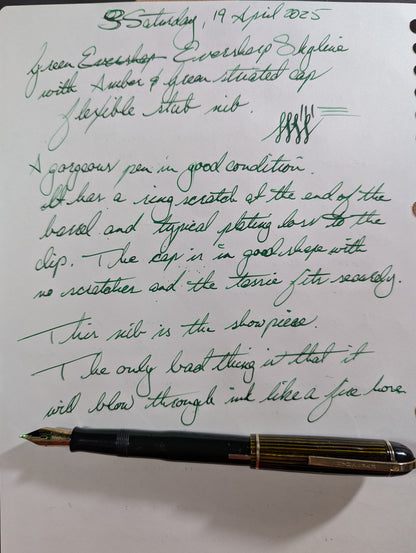 Saturday, 19 April 2025
Green Eversharp Eversharp Skyline
with Amber & Green striated cap
flexible stub nib.
A gorgeous pen in good condition.
It has a ring scratch at the end of the
barrel and typical plating loss to the
clip. The cap is in good shape with
no scratches and the tassie fits securely.
This nib is the showpiece.
The only bad thing is that it
will blow through ink like a fire hose